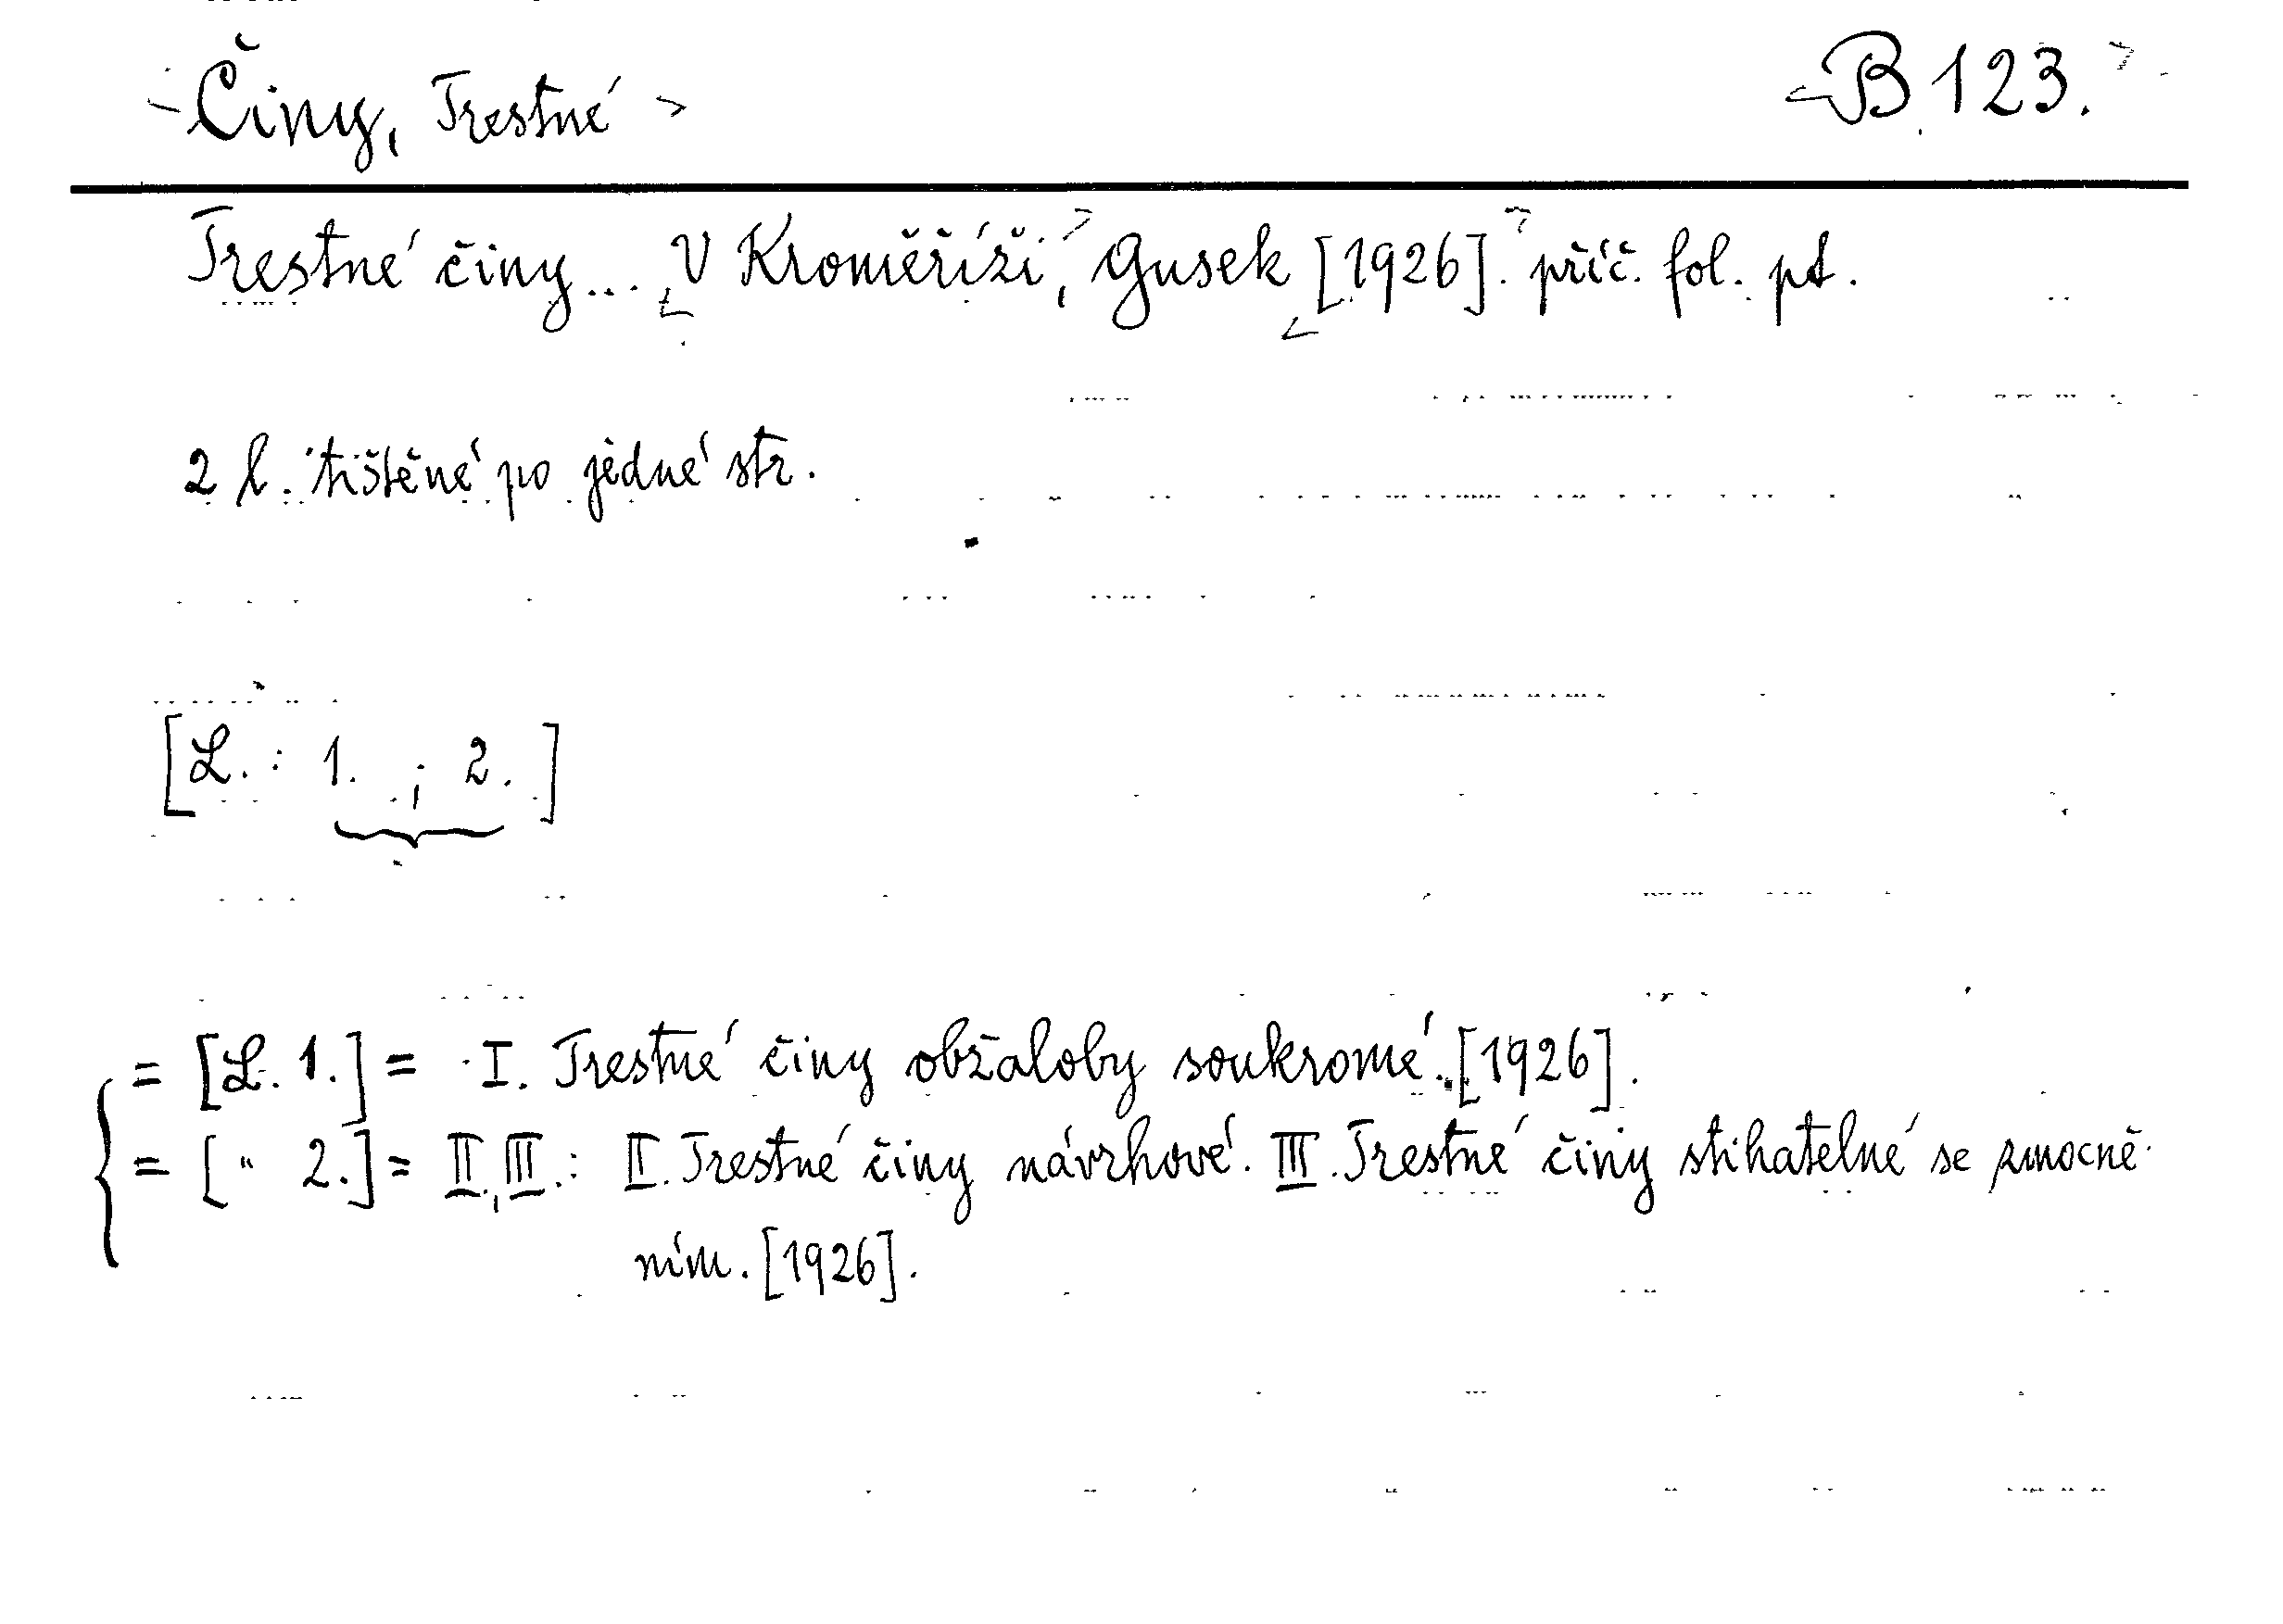 Činy, Trestné B 123.
Trestné činy... V Kroměříži, Gusek [1926]. příč. fol. pt.
2 l. tištěné po jedné str.
[L. : 1. ; 2. ]
= [L. 1.] = I. Trestné činy obžaloby soukromé. [1926].
= [ " 2.] = II., III.: II. Trestné činy návrhové. III. Trestné činy stihatelné se zmocně-
ním. [1926].